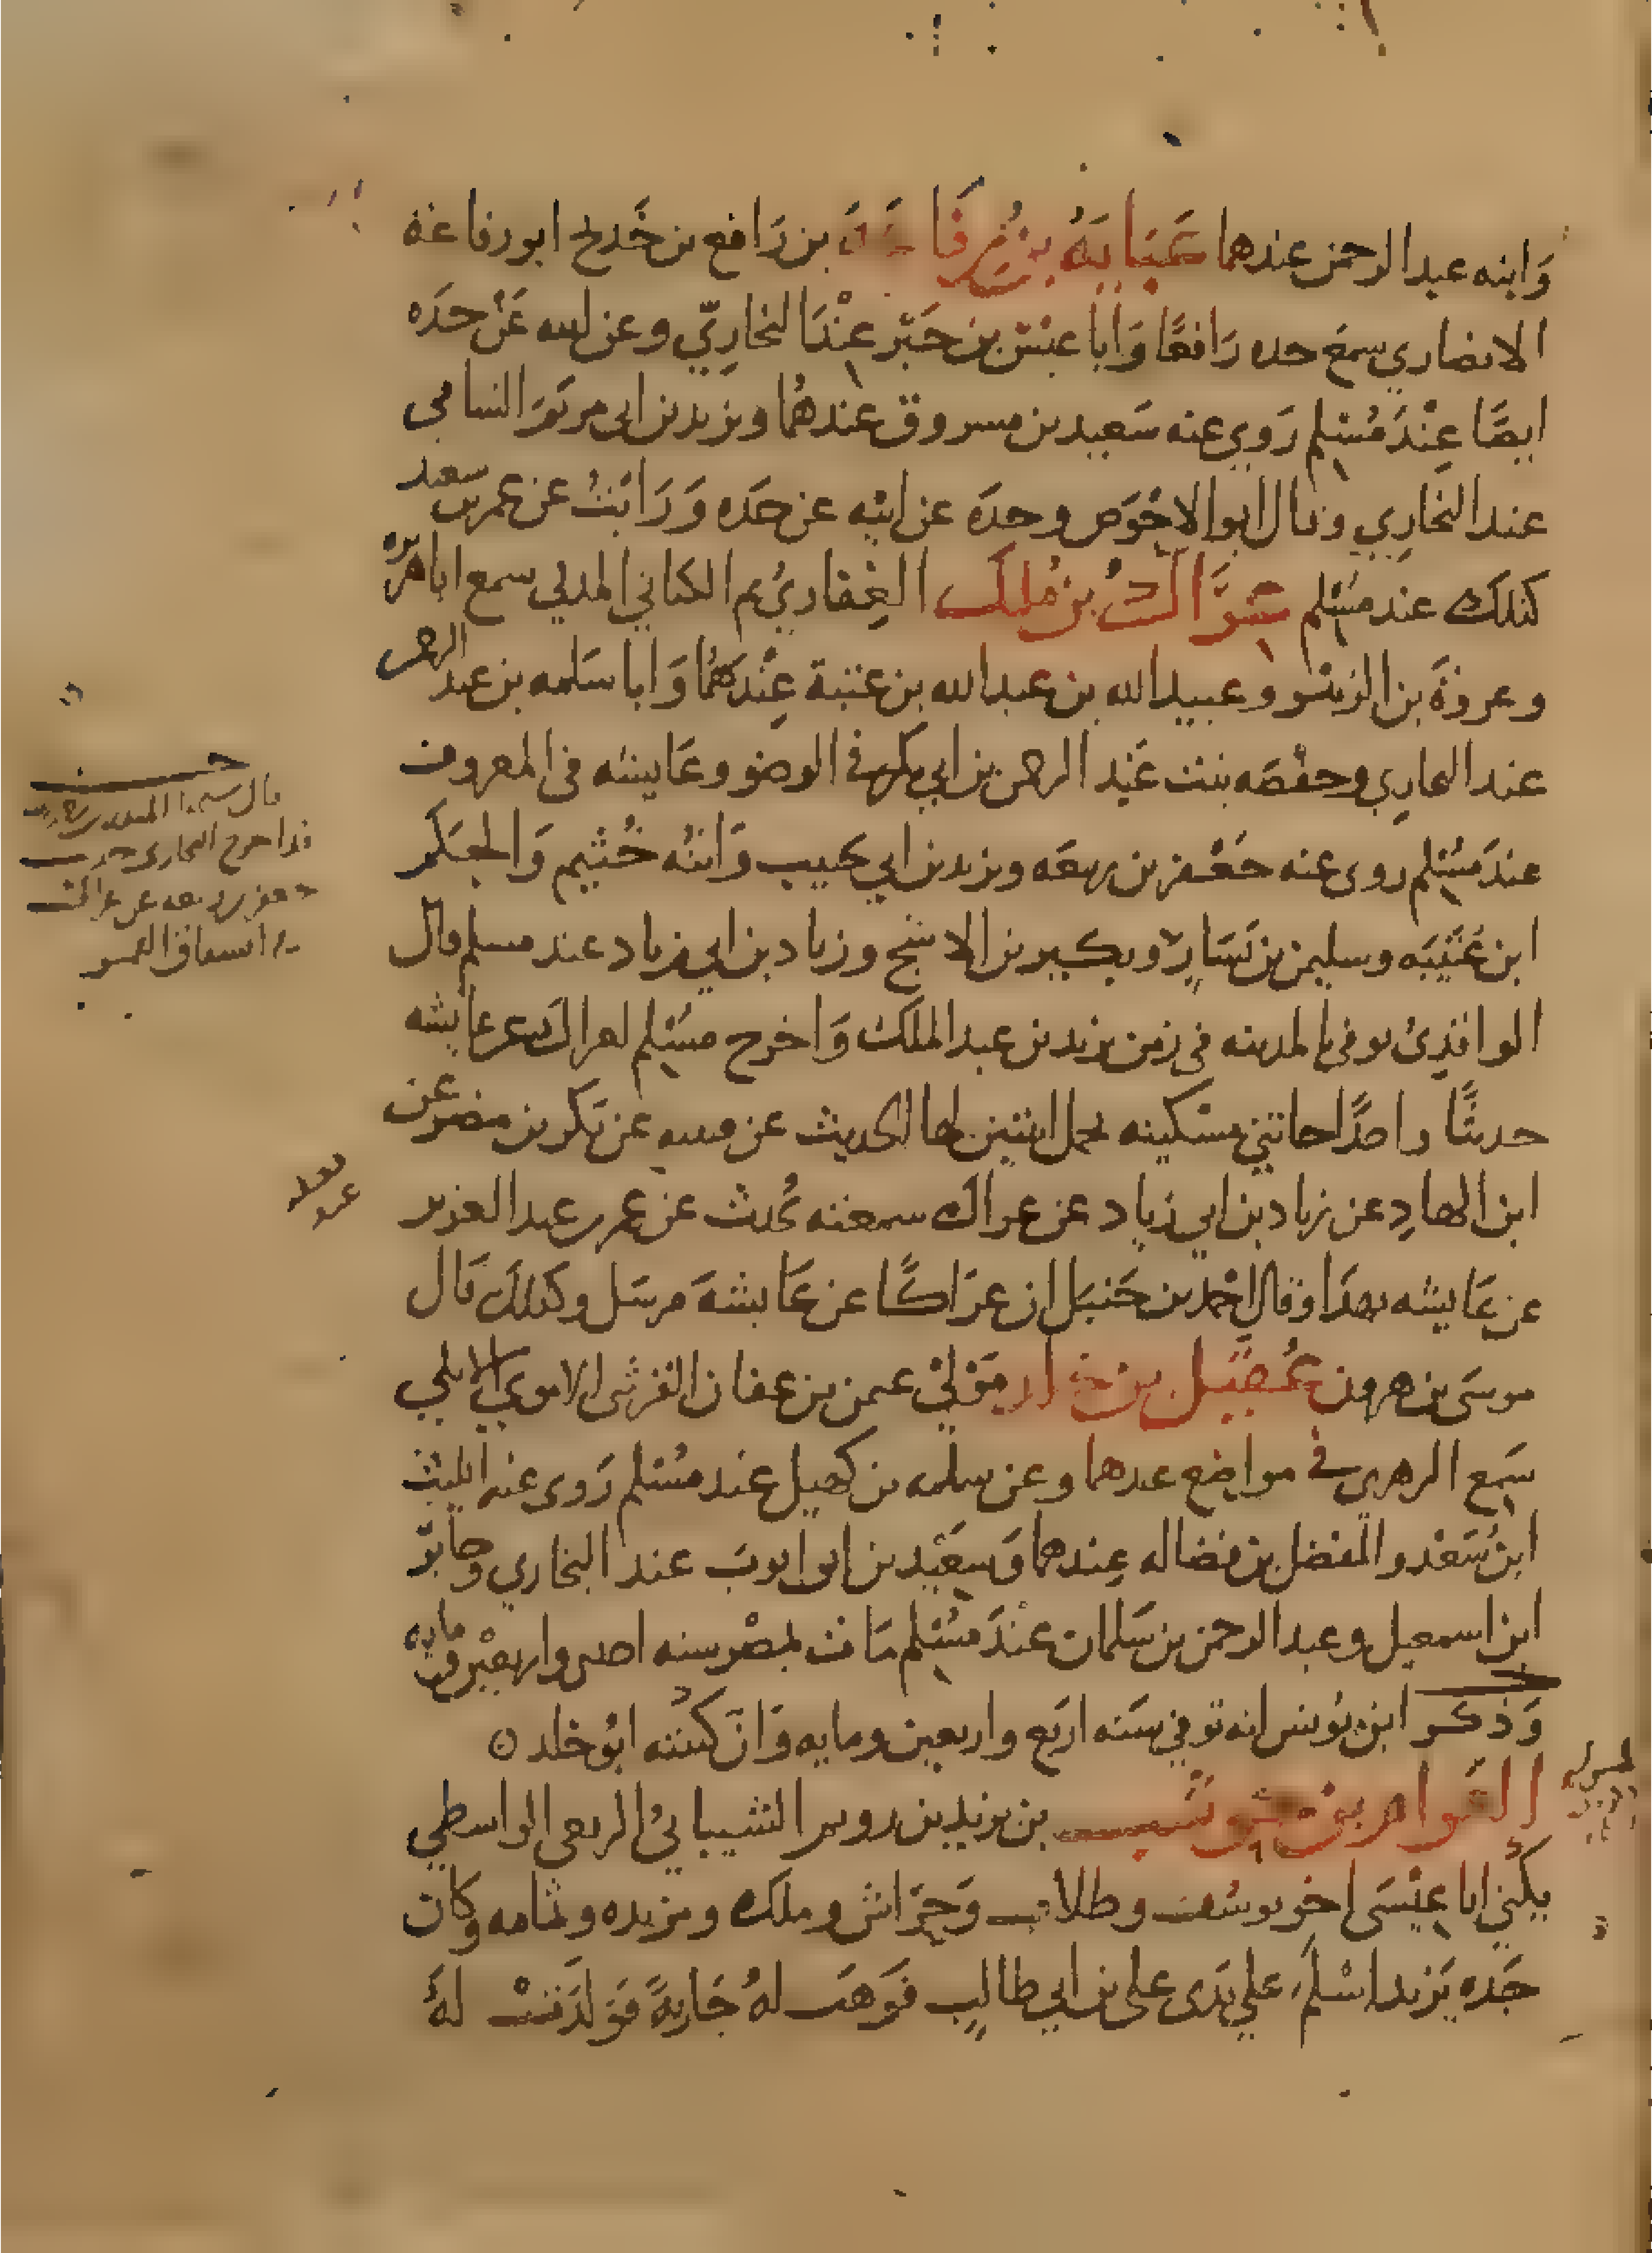 وَابنه عبد الرحمن عندهما عَبَايَةُ بن رِفَاعَةَ بن رَافع بن خَديج ابو رفاعة
الانصاري سمع جده رَافعًا وَأبا عبْس بن جَبْر عنْدَ البخاريّ وعن ابيه عَنْ جدَه
ايضًا عِنْدَ مُسْلم رَوى عنه سَعيد بن مسروق عندهُما ويزيد بن ابي مريَمَ الشامي
عند البخاري وقال ابو الاحْوَص وحدَه عن ابيْه عن جَده وَرَايَتُ عن عمر بن سعيد
كذلك عند مسْلم عِرَاكُ بن مٰلك الغِفاريُ ثم الكناني المدني سمع ابا هريره
وعروَةَ بن الزبيْر وعبيد الله بن عبد الله بن عتبة عِنْدَهُمَا وَابا سَلمه بن عبد الرحمن
عند البخاري وحفْصَه بنت عَبْد الرحمن بن ابي بكر في الوضو وعَايشه في المعروف
عندَ مسُلم روى عنه جَعْفر بن ربيعَه ويزيد بن ابي حَبيب وَابنُه خُثيم وَالحَكم
ابن عُتَيْبَه وسليمن بن يَسَارٍ وبكير بن الاشج وزياد بن ابي زياد عند مسلم قال
الواقذِيُ توفي بالمدينه في زمن يزيد بن عبد الملك وَاخرج مسْلم لعراك عن عايشه
حديثًا واحدًا جاتني مسْكينه تحمل ابنتين لها الحديث عن قتيبه عن بَكر بن مضر عن
ابن الهادِ عن زياد بن ابي زياد عن عراك سمعته يُحدث عن عمر بن عبد العزيز
عن عَايشه بهذَا وقال احْمد بن حَنبَل ان عرَاكًا عن عَايشَةَ مرسَل وكذلك قَال
موسَى بن هرون عُقَيْل بن خٰلد مَوْلىْ عثمن بن عفان القرشى الاموي الايلي
سَمع الزهري في مواضِع عندهما وعن سلمه بن كهيل عند مسْلم رَوى عنه الليث
ابنُ سَعْد والمفضل بن فضاله عِندهما وَسعيْد بن ابي ايوبَ عند البخاري وجابرُ
ابن اسمعيل وعبد الرحمن بن سَلمان عنْدَ مسْلم مَات بمصْر سنه احدى واربعيْن ومايه
وَذكر ابن يُونس انه توفي سَنه اربَع واربعين ومايه وَانَ كنيته ابُو خٰلد
العَوام بن حَوْشَب بن يزيد بن رويم الشيبانيُ الربعى الواسطي
يكْني ابا عيْسَى اخو يوسُف وطلاب وَخِرَاش وملك ومزيده وثمامه وكان
جَده يَزيد اسْلَم علي يَدَى على بن ابي طالبٍ فَوَهَب لهُ جَاريةً فوَلدَتْ لهُ